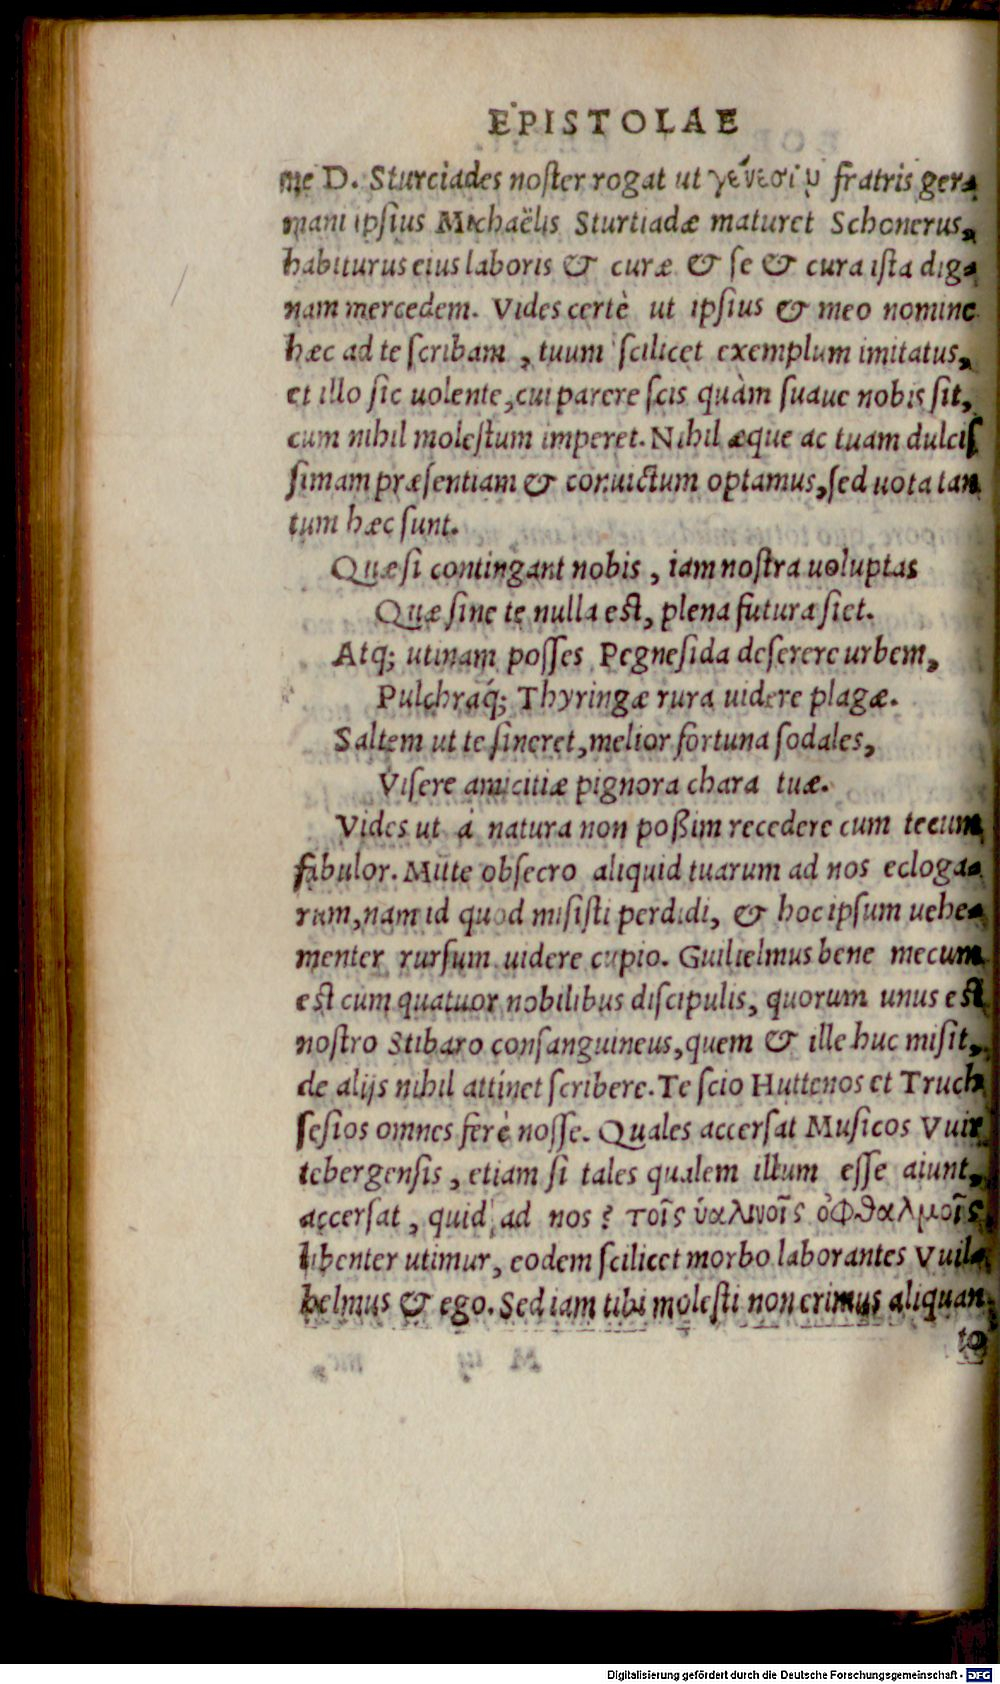 EPISTOLAE
me D. Sturciades noster rogat ut γένεσιμ fratris ger⸗
mani ipsius Michaëlis Sturtiadæ maturet Schonerus,
habiturus eius laboris & curæ & se & cura ista dig⸗
nam mercedem. Vides certè ut ipsius & meo nomine
hæc ad te scribam, tuum scilicet exemplum imitatus,
et illo sic uolente, cui parere scis quàm suaue nobis sit,
cum nihil molestum imperet. Nihil æque ac tuam dulcis
simam præsentiam & conuictum optamus, sed uota tan
tum hæc sunt.
Quæ si contingant nobis, iam nostra uoluptas
Quæ sine te nulla est, plena futura siet.
Atq; utinam posses Pegnesida deserere urbem,
Pulchraq́; Thyringæ rura uidere plagæ.
Saltem ut te sineret, melior fortuna sodales,
Visere amicitiæ pignora chara tuæ.
Vides ut à natura non poßim recedere cum tecum
fabulor. Mitte obsecro aliquid tuarum ad nos ecloga⸗
rum, nam id quod misisti perdidi, & hoc ipsum uehe⸗
menter rursum uidere cupio. Guilielmus bene mecum
est cum quatuor nobilibus discipulis, quorum unus est
nostro Stibaro consanguineus, quem & ille huc misit,
de alijs nihil attinet scribere. Te scio Huttenos et Truch
sesios omnes ferè nosse. Quales accersat Musicos Vuir
tebergensis, etiam si tales qualem illum esse aiunt,
accersat, quid ad nos? τοῖς ὑαλινοῖς ὀφθαλμοῖς
libenter utimur, eodem scilicet morbo laborantes Vuil⸗
helmus & ego. Sed iam tibi molesti non erimus aliquan
to
Digitalisierung gefördert durch die Deutsche Forschungsgemeinschaft - DFG